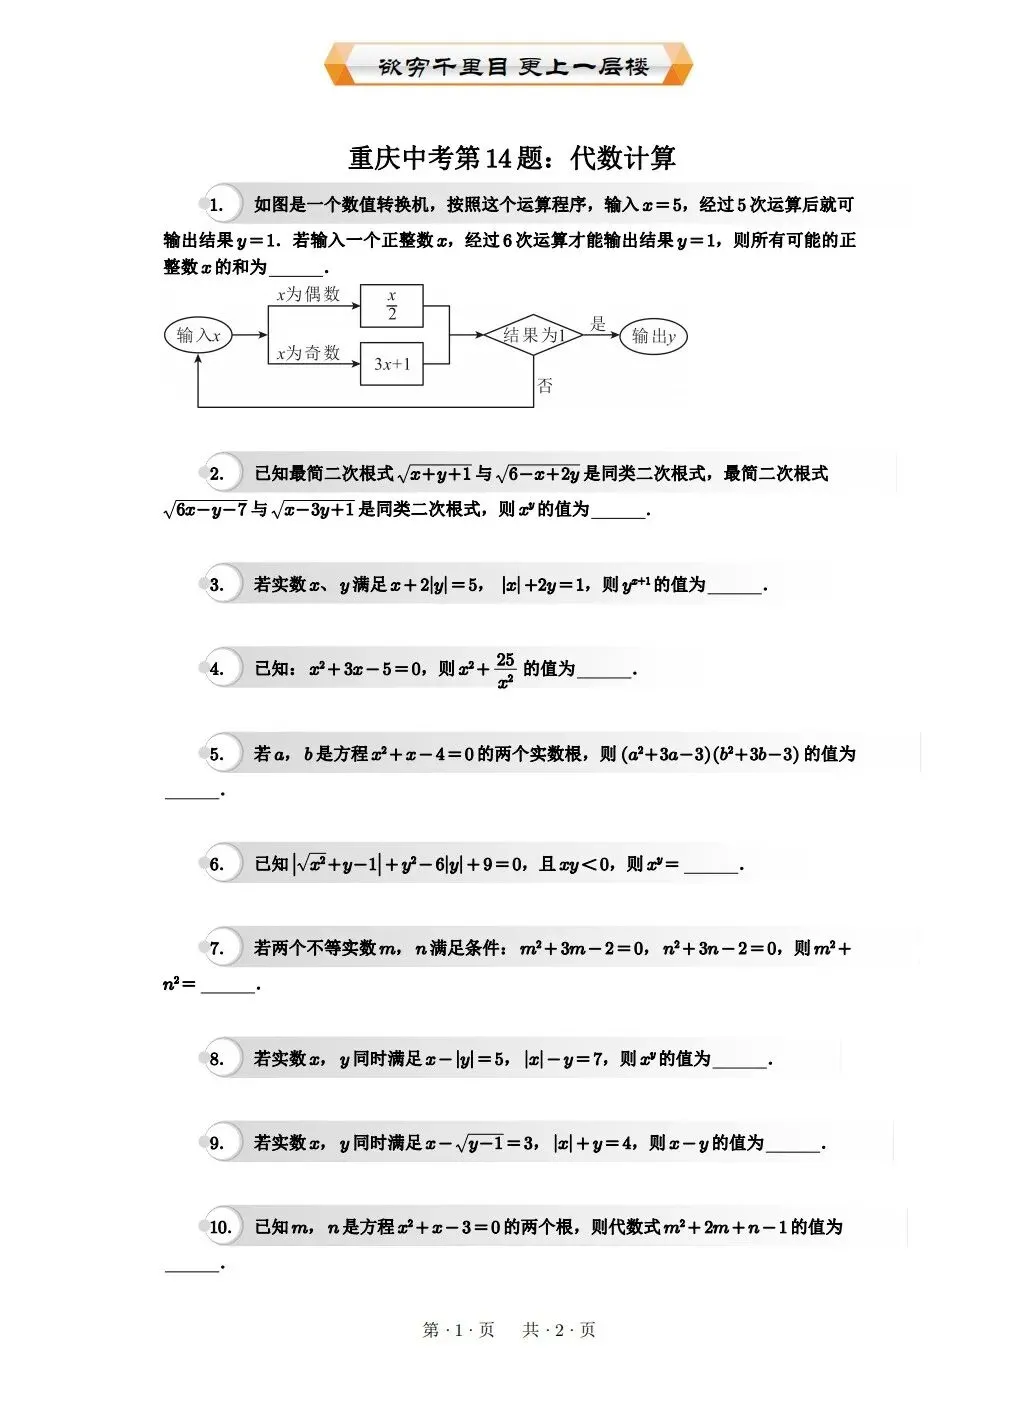 欲穷千里目 更上一层楼
重庆中考第14题：代数计算
1. 如图是一个数值转换机，按照这个运算程序，输入x＝5，经过5次运算后就可
输出结果y＝1．若输入一个正整数x，经过6次运算才能输出结果y＝1，则所有可能的正
整数x的和为______．
x为偶数
x/2
输入x
结果为1
是
输出y
x为奇数
3x+1
否
2. 已知最简二次根式√(x+y+1)与√(6−x+2y)是同类二次根式，最简二次根式
√(6x−y−7)与√(x−3y+1)是同类二次根式，则xʸ的值为______．
3. 若实数x、y满足x+2|y|＝5，|x|+2y＝1，则yˣ⁺¹的值为______．
4. 已知：x²+3x−5＝0，则x²+25/x²的值为______．
5. 若a，b是方程x²+x−4＝0的两个实数根，则(a²+3a−3)(b²+3b−3)的值为
______．
6. 已知|√x²+y−1|+y²−6|y|+9＝0，且xy＜0，则xʸ＝______．
7. 若两个不等实数m，n满足条件：m²+3m−2＝0，n²+3n−2＝0，则m²+
n²＝______．
8. 若实数x，y同时满足x−|y|＝5，|x|−y＝7，则xʸ的值为______．
9. 若实数x，y同时满足x−√(y−1)＝3，|x|+y＝4，则x−y的值为______．
10. 已知m，n是方程x²+x−3＝0的两个根，则代数式m²+2m+n−1的值为
______．
第·1·页 共·2·页